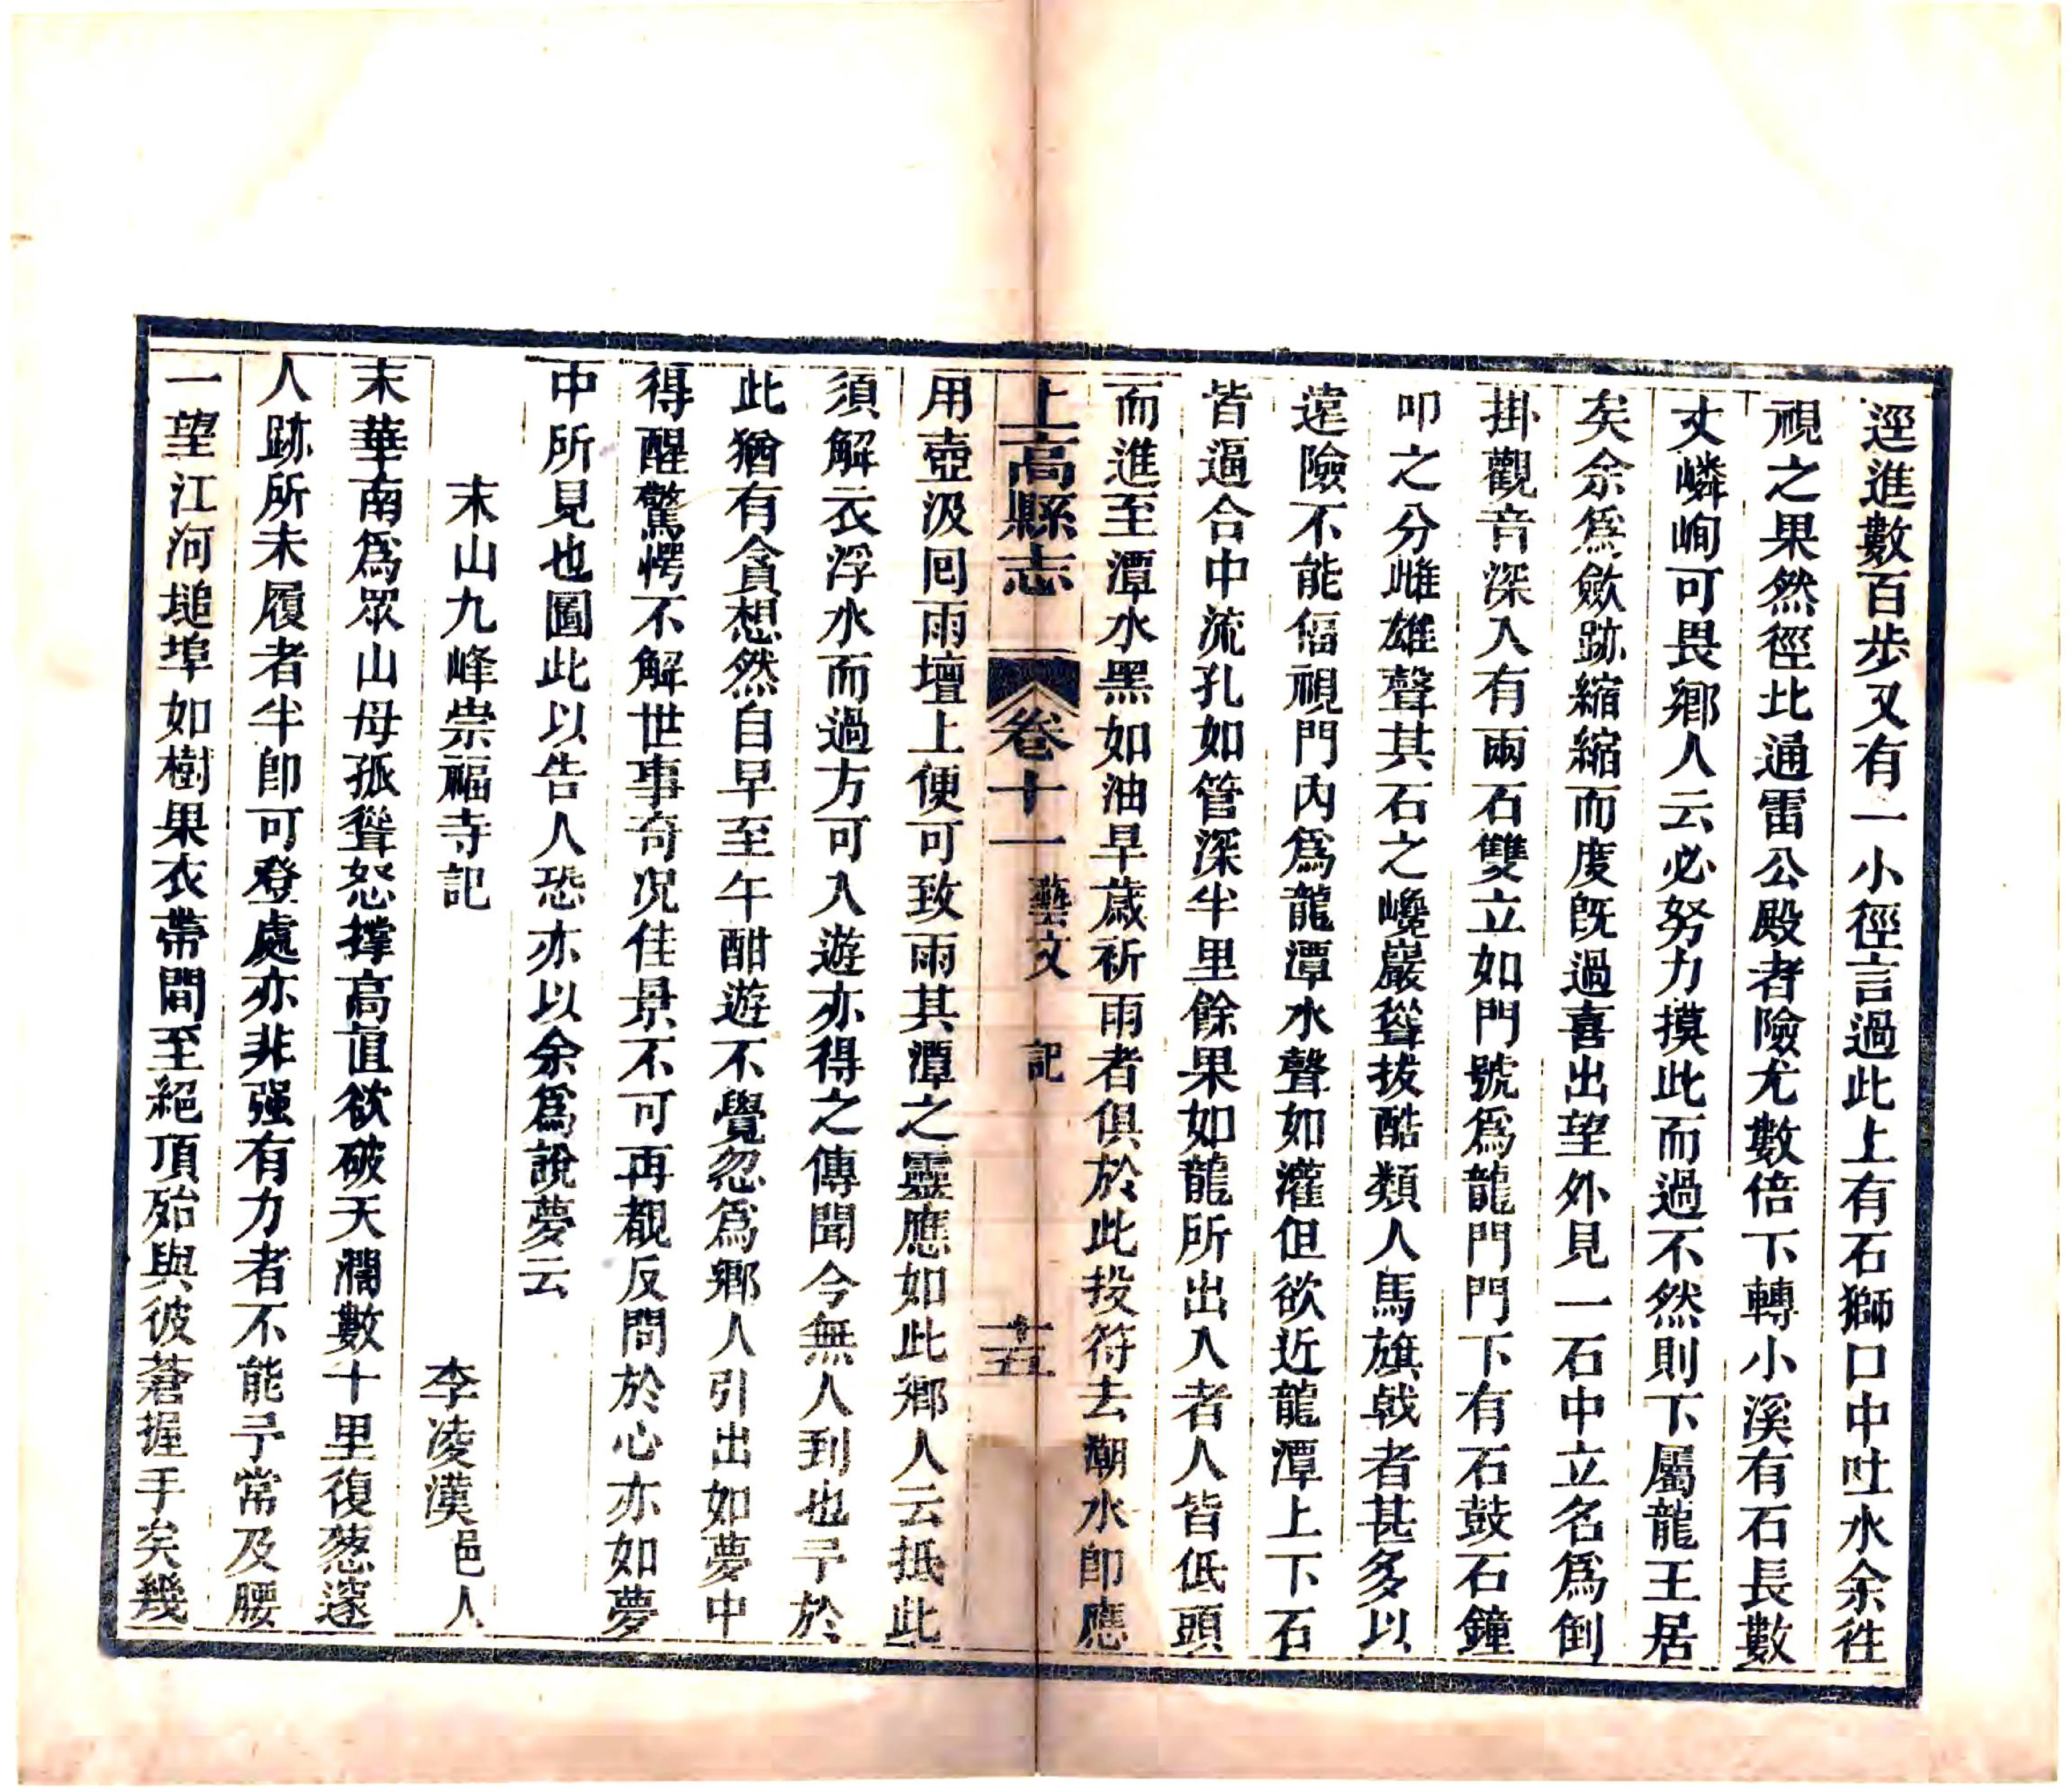 逕進數百步又有一小徑言過此上有石獅口中吐水余徃
視之果然徑比通雷公殿者險尤數倍下轉小溪有石長數
丈嶙峋可畏鄉人云必努力摸此而過不然則下屬龍王居
矣余爲斂跡縮縮而度旣過喜出望外見一石中立名爲倒
掛觀音深入有兩石雙立如門號爲龍門門下有石鼓石鐘
叩之分雌雄聲其石之巉巖聳拔酷類人馬旗戟者甚多以
遠險不能偪視門內爲龍潭水聲如灌但欲近龍潭上下石
皆逼合中流孔如管深半里餘果如龍所出入者人皆低頭
而進至潭水黑如油旱歲祈雨者俱於此投符去潮水卽應
上高縣志 卷十一 藝文 記
用壺汲囘雨壇上便可致雨其潭之靈應如此鄉人云抵此
須解衣浮水而過方可入遊亦得之傳聞今無人到也予於
此猶有貪想然自早至午酣遊不覺忽爲鄉人引出如夢中
得醒驚愕不解世事奇况佳景不可再覩反問於心亦如夢
中所見也圖此以告人恐亦以余爲說夢云
末山九峰崇福寺記 李凌漢邑人
末華南爲眾山母孤聳怒撑高直欲破天濶數十里復蔥邃
人跡所未履者半卽可登處亦非强有力者不能予常及腰
一望江河塠埠如樹果衣帶間至絕頂殆與彼蒼握手矣幾